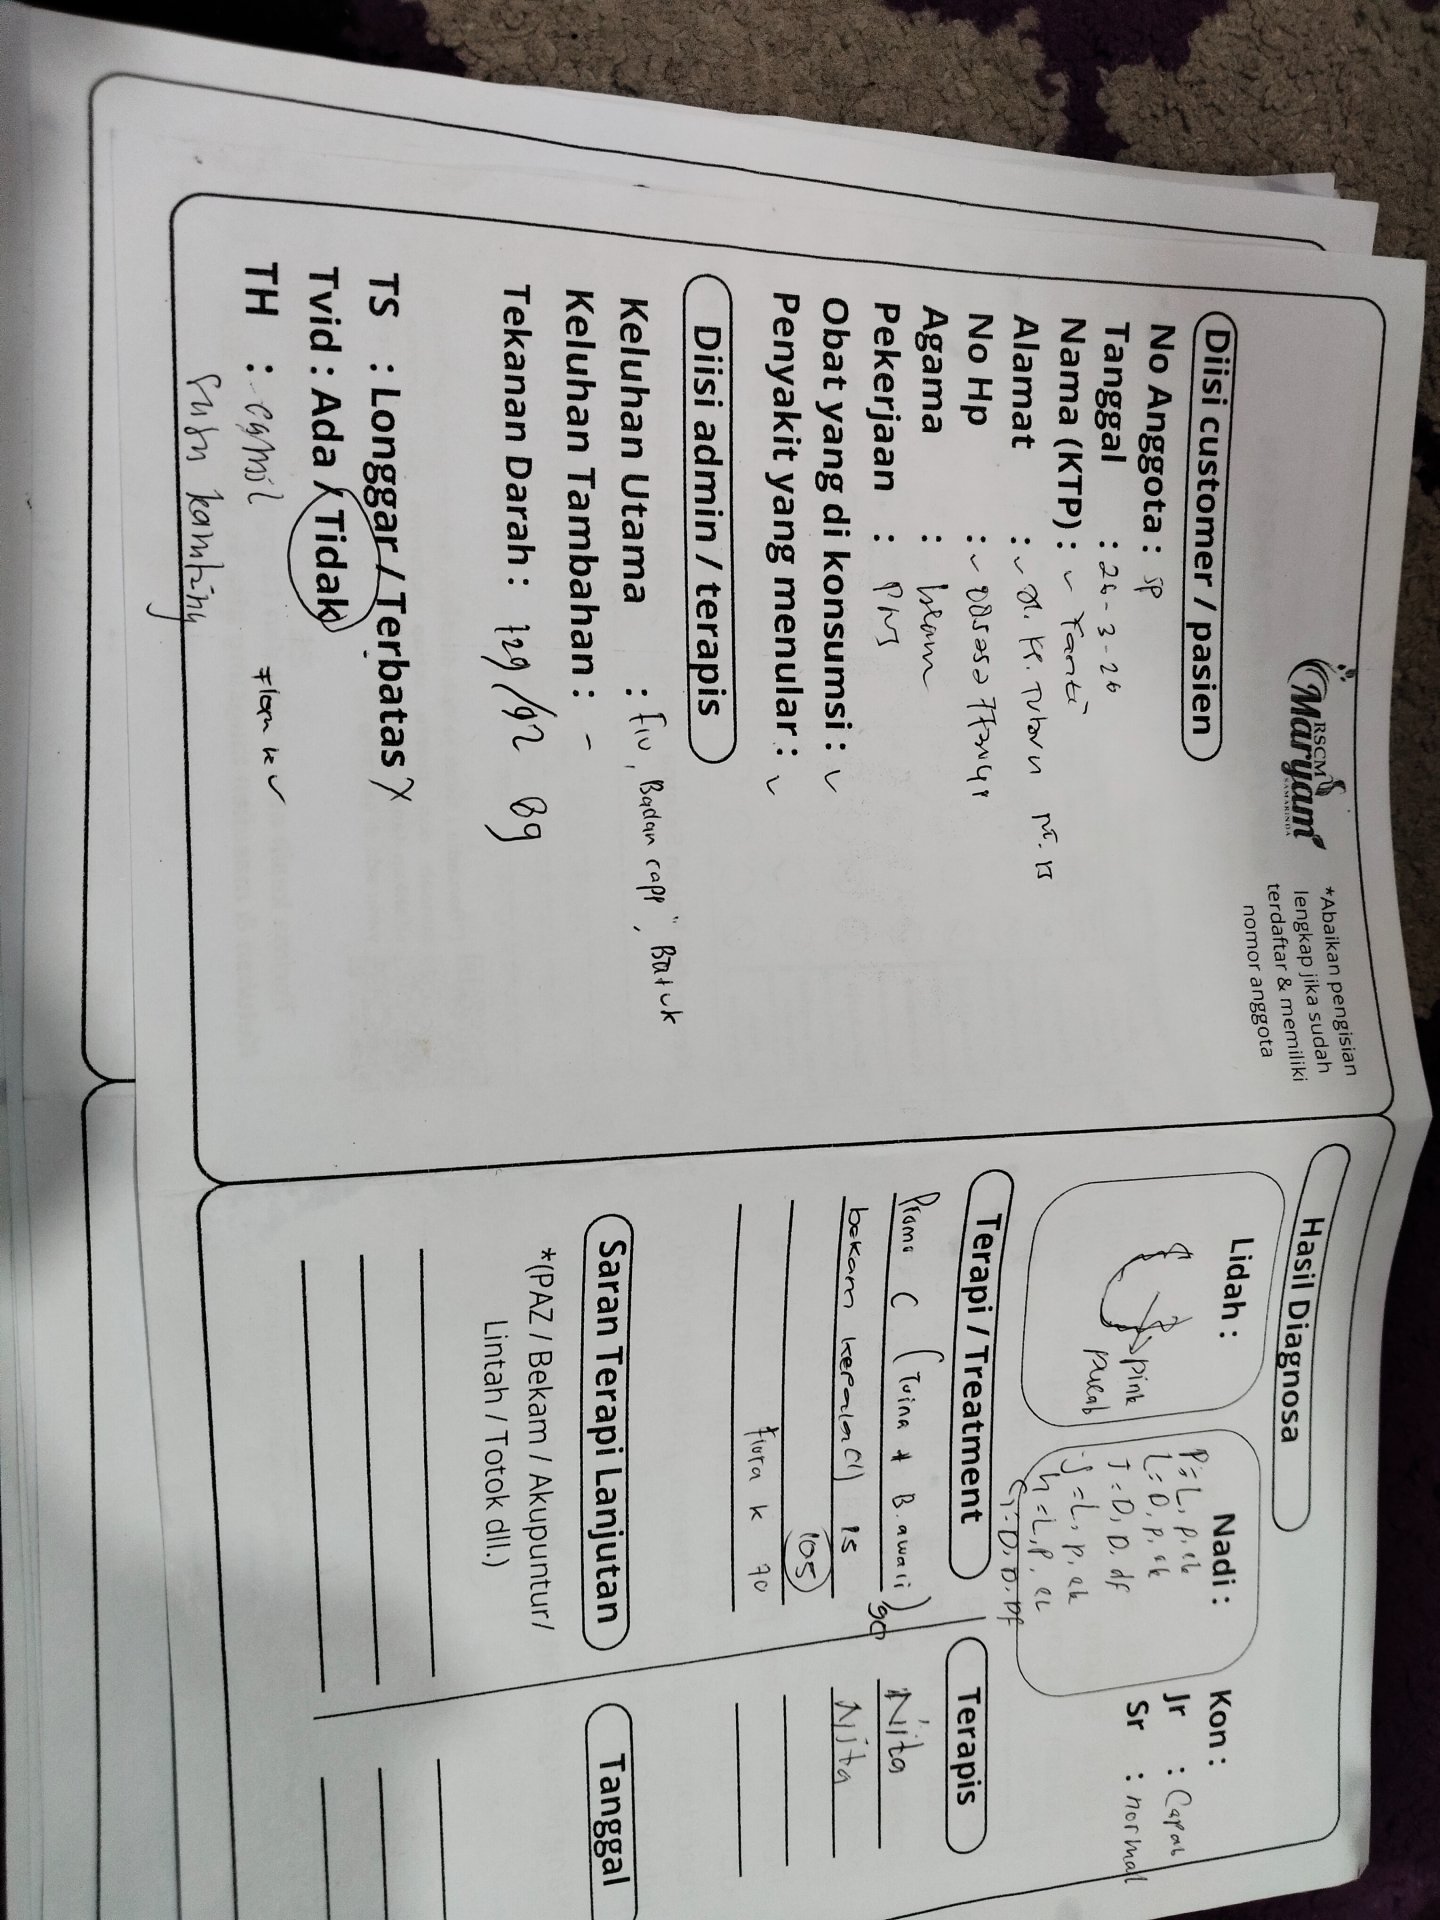 RSCM
Maryam
SAMARINDA
*Abaikan pengisian
lengkap jika sudah
terdaftar & memiliki
nomor anggota
Diisi customer / pasien
No Anggota : SP
Tanggal : 26-3-26
Nama (KTP) :
Alamat :
No Hp :
Agama :
Pekerjaan : PNS
Obat yang di konsumsi :
Penyakit yang menular :
Diisi admin / terapis
Keluhan Utama : Flu, Badan capp", Batuk
Keluhan Tambahan : -
Tekanan Darah : 129/92 89
TS : Longgar / Terbatas
Tvid : Ada / Tidak
TH :
susu kambing
Hasil Diagnosa
Lidah :
pink
pucat
Nadi :
P = L, P, ek
L = D, P, ek
J = D, D, df
J = L, P, ek
h = L, P, ek
G = D, D, DF
Kon :
Jr : Capek
Sr : normal
Terapi / Treatment
Promo C (Tuina + B. awali) 90
bekam kepala (1) 15
105
Flora K 70
Terapis
Nita
Nita
Saran Terapi Lanjutan
*(PAZ / Bekam / Akupuntur/
Lintah / Totok dll.)
Tanggal